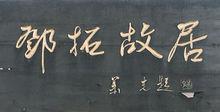 鄧拓故居